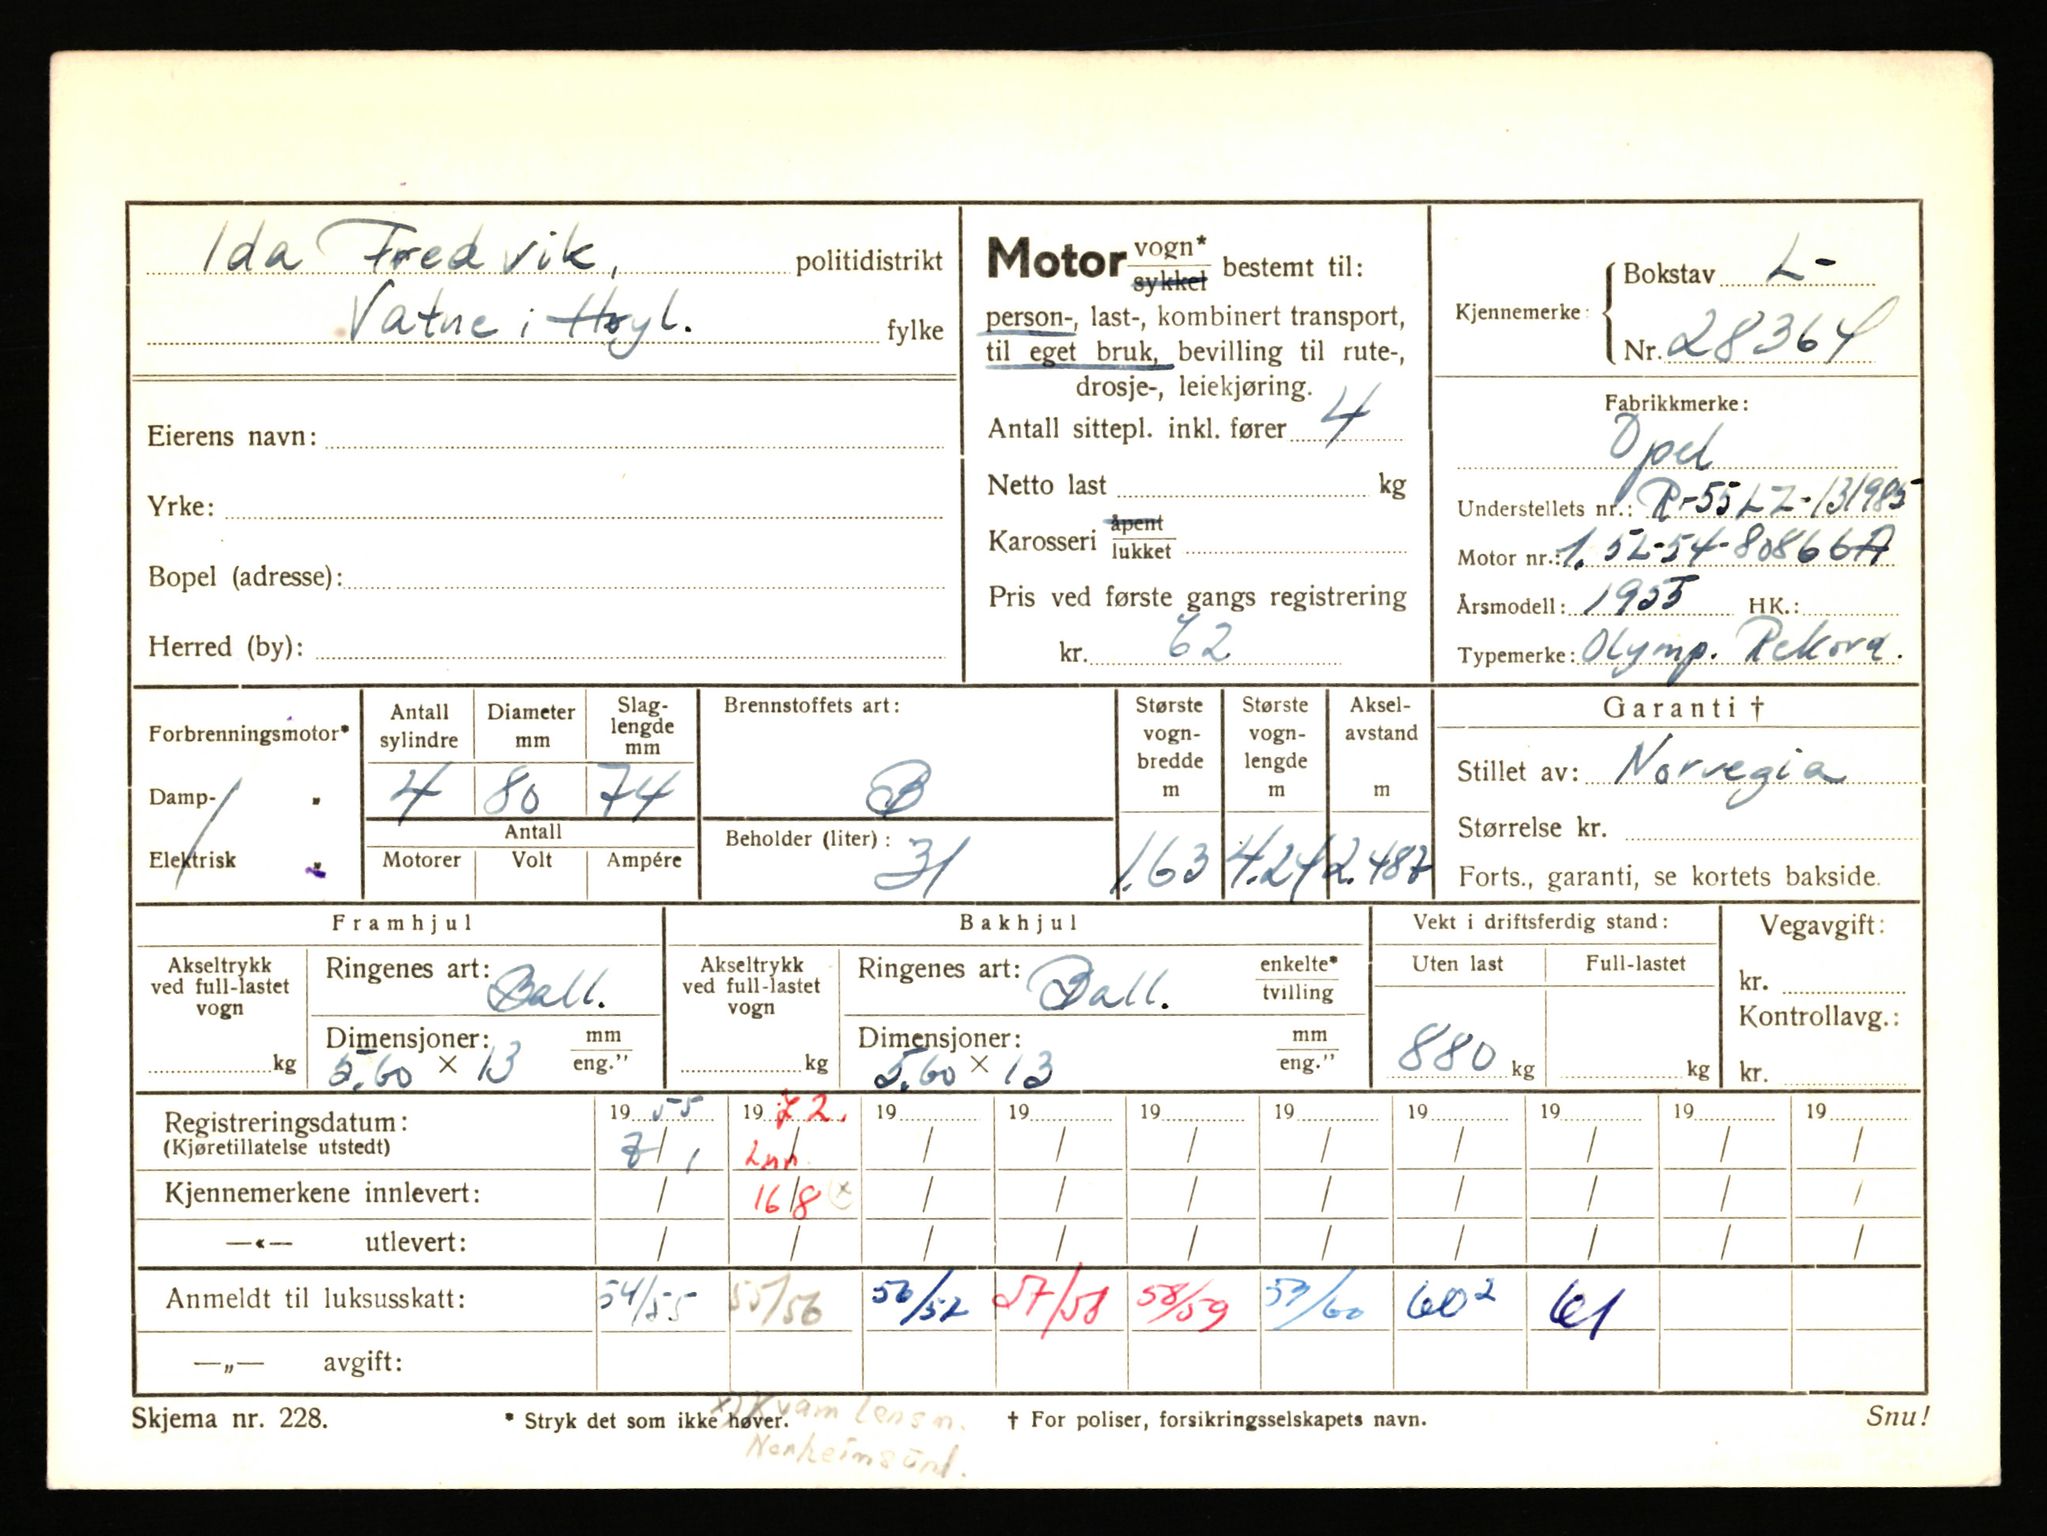 Ida Fredvik, politidistrikt
Vatne i Høyl. fylke
Eierens navn:
Yrke:
Bopel (adresse):
Herred (by):
Motor vogn* sykkel bestemt til:
person-, last-, kombinert transport,
til eget bruk, bevilling til rute-,
drosje-, leiekjøring.
Antall sittepl. inkl. fører 4
Netto last kg
Karosseri åpent lukket
Pris ved første gangs registrering
kr. 62
Kjennemerke: Bokstav L-
Nr. 28364
Fabrikkmerke:
Opel
Understellets nr.: R-55LZ-131985
Motor nr.: 1.5L-54-80866A
Årsmodell: 1955 HK.:
Typemerke: Olymp. Rekord.
Forbrenningsmotor*
Damp- "
Elektrisk "
Antall sylindre
Diameter mm
Slag-lengde mm
4 80 74
Antall
Motorer Volt Ampére
Brennstoffets art:
B
Beholder (liter): 31
Største vogn-bredde m
1.63
Største vogn-lengde m
4.24
Aksel-avstand m
2.487
Garanti †
Stillet av: Norvegia
Størrelse kr.
Forts., garanti, se kortets bakside.
Framhjul
Akseltrykk ved full-lastet vogn
kg
Ringenes art: Ball.
Dimensjoner: mm eng."
5.60 × 13
Bakhjul
Akseltrykk ved full-lastet vogn
kg
Ringenes art: Ball. enkelte* tvilling
Dimensjoner: mm eng."
5.60 × 13
Vekt i driftsferdig stand:
Uten last Full-lastet
880 kg kg
Vegavgift:
kr.
Kontrollavg.:
kr.
Registreringsdatum: 1955 1972. 19 19 19 19 19 19 19 19
(Kjøretillatelse utstedt) 7/1 Inn / / / / / / / /
Kjennemerkene innlevert: / 16/8 x / / / / / / / /
—«— utlevert: / / / / / / / / / /
Anmeldt til luksusskatt: 54/55 55/56 56/57 57/58 58/59 59/60 60² 61
—„— avgift:
Skjema nr. 228. * Stryk det som ikke høver. † For poliser, forsikringsselskapets navn. Snu!
x) Kvam lensm.
Norheimsund.